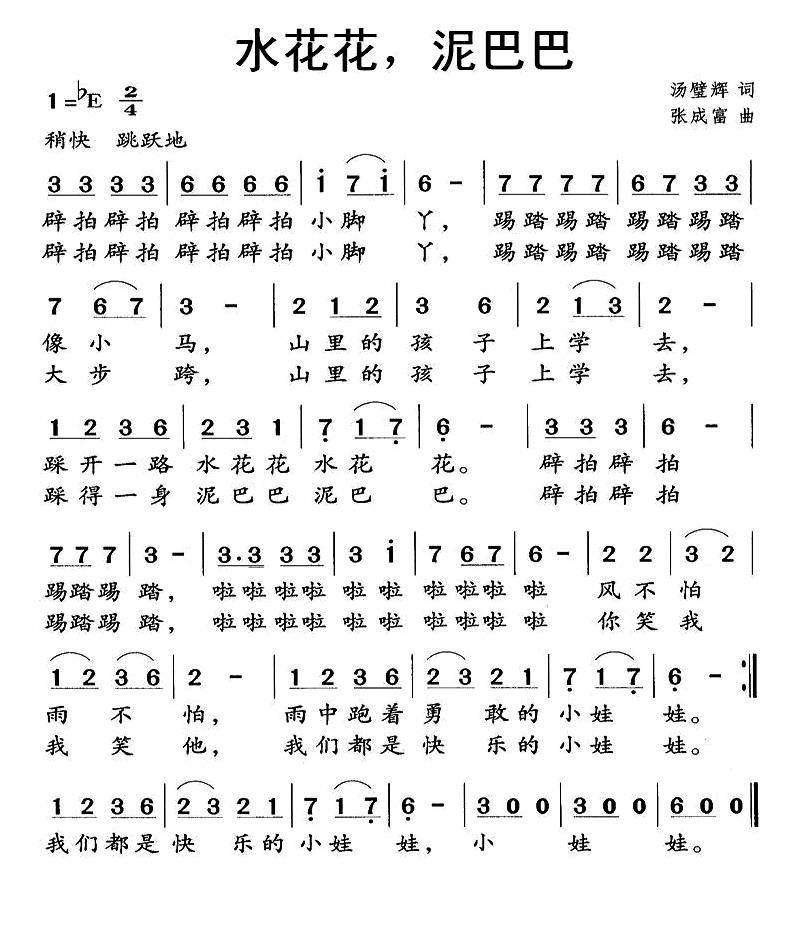 水花花，泥巴巴
1=♭E 2/4
汤璧辉 词
张成富 曲
稍快 跳跃地
3 3 3 3 | 6 6 6 6 | i 7 i | 6 - | 7 7 7 7 | 6 7 3 3 |
辟拍辟拍 辟拍辟拍 小脚 丫， 踢踏踢踏 踢踏踢踏
辟拍辟拍 辟拍辟拍 小脚 丫， 踢踏踢踏 踢踏踢踏
7 6 7 | 3 - | 2 1 2 | 3 6 | 2 1 3 | 2 - |
像 小 马， 山 里 的 孩 子 上 学 去，
大 步 跨， 山 里 的 孩 子 上 学 去，
1 2 3 6 | 2 3 1 | 7̣ 1 7̣ | 6̣ - | 3 3 3 | 6 - |
踩 开 一 路 水 花 花 水 花 花。 辟 拍 辟 拍
踩 得 一 身 泥 巴 巴 泥 巴 巴。 辟 拍 辟 拍
7 7 7 | 3 - | 3·3 3 3 | 3 i | 7 6 7 | 6 - | 2 2 | 3 2 |
踢踏踢 踏， 啦啦啦啦 啦 啦 啦啦啦 啦 风 不 怕
踢踏踢 踏， 啦啦啦啦 啦 啦 啦啦啦 啦 你 笑 我
1 2 3 6 | 2 - | 1 2 3 6 | 2 3 2 1 | 7̣ 1 7̣ | 6̣ - :‖
雨 不 怕， 雨 中 跑 着 勇 敢 的 小 娃 娃。
我 笑 他， 我 们 都 是 快 乐 的 小 娃 娃。
1 2 3 6 | 2 3 2 1 | 7̣ 1 7̣ | 6̣ - | 3 0 0 | 3 0 0 | 6 0 0 ‖
我 们 都 是 快 乐 的 小 娃 娃， 小 娃 娃。